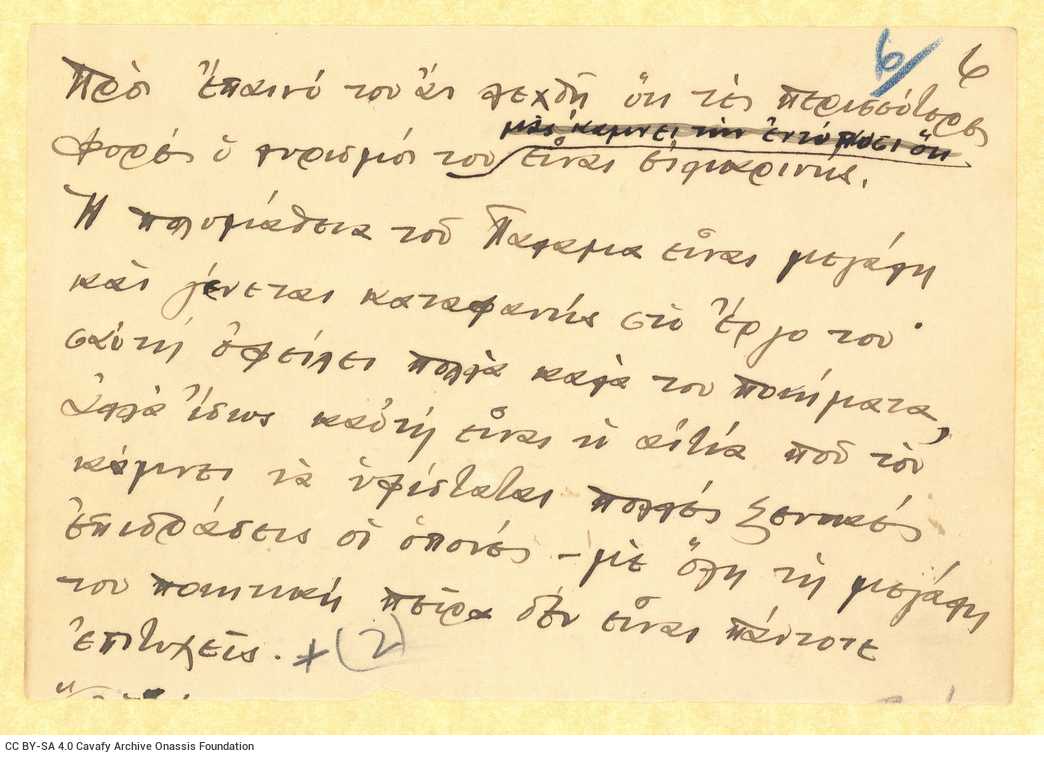 6 6
Πρὸς ἔπαινό του ἂς λεχθῇ ὅτι τὲς περισσότερες
μᾶς κάμνει τὴν ἐντύπωσι ὅτι
φορὲς ὁ λυρισμός του εἶναι εἰλικρινής.
Ἡ πολυμάθεια τοῦ Παλαμᾶ εἶναι μεγάλη
καὶ γένεται καταφανὴς στὸ ἔργο του·
σ' αὐτὴ ὀφείλει πολλὰ καλά του ποιήματα,
ἀλλὰ ἴσως κι' αὐτὴ εἶναι ἡ αἰτία ποῦ τὸν
κάμνει νὰ ὑφίσταται πολλὲς ξενικὲς
ἐπιδράσεις οἱ ὁποῖες – μὲ ὅλη τὴ μεγάλη
του ποιητικὴ πεῖρα δὲν εἶναι πάντοτε
ἐπιτυχεῖς. + (2)
CC BY-SA 4.0 Cavafy Archive Onassis Foundation